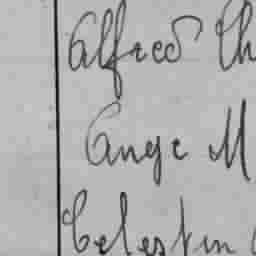 Alfred Ch
Ange M
Celestin